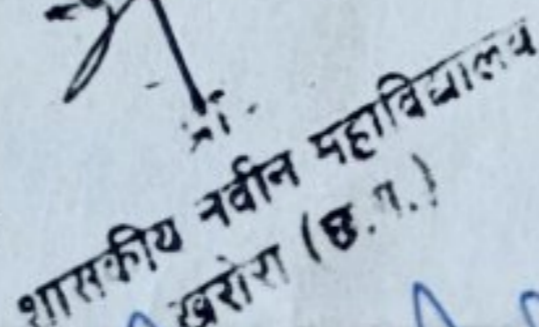 शासकीय नवीन महाविद्यालय
खरोरा (छ.ग.)